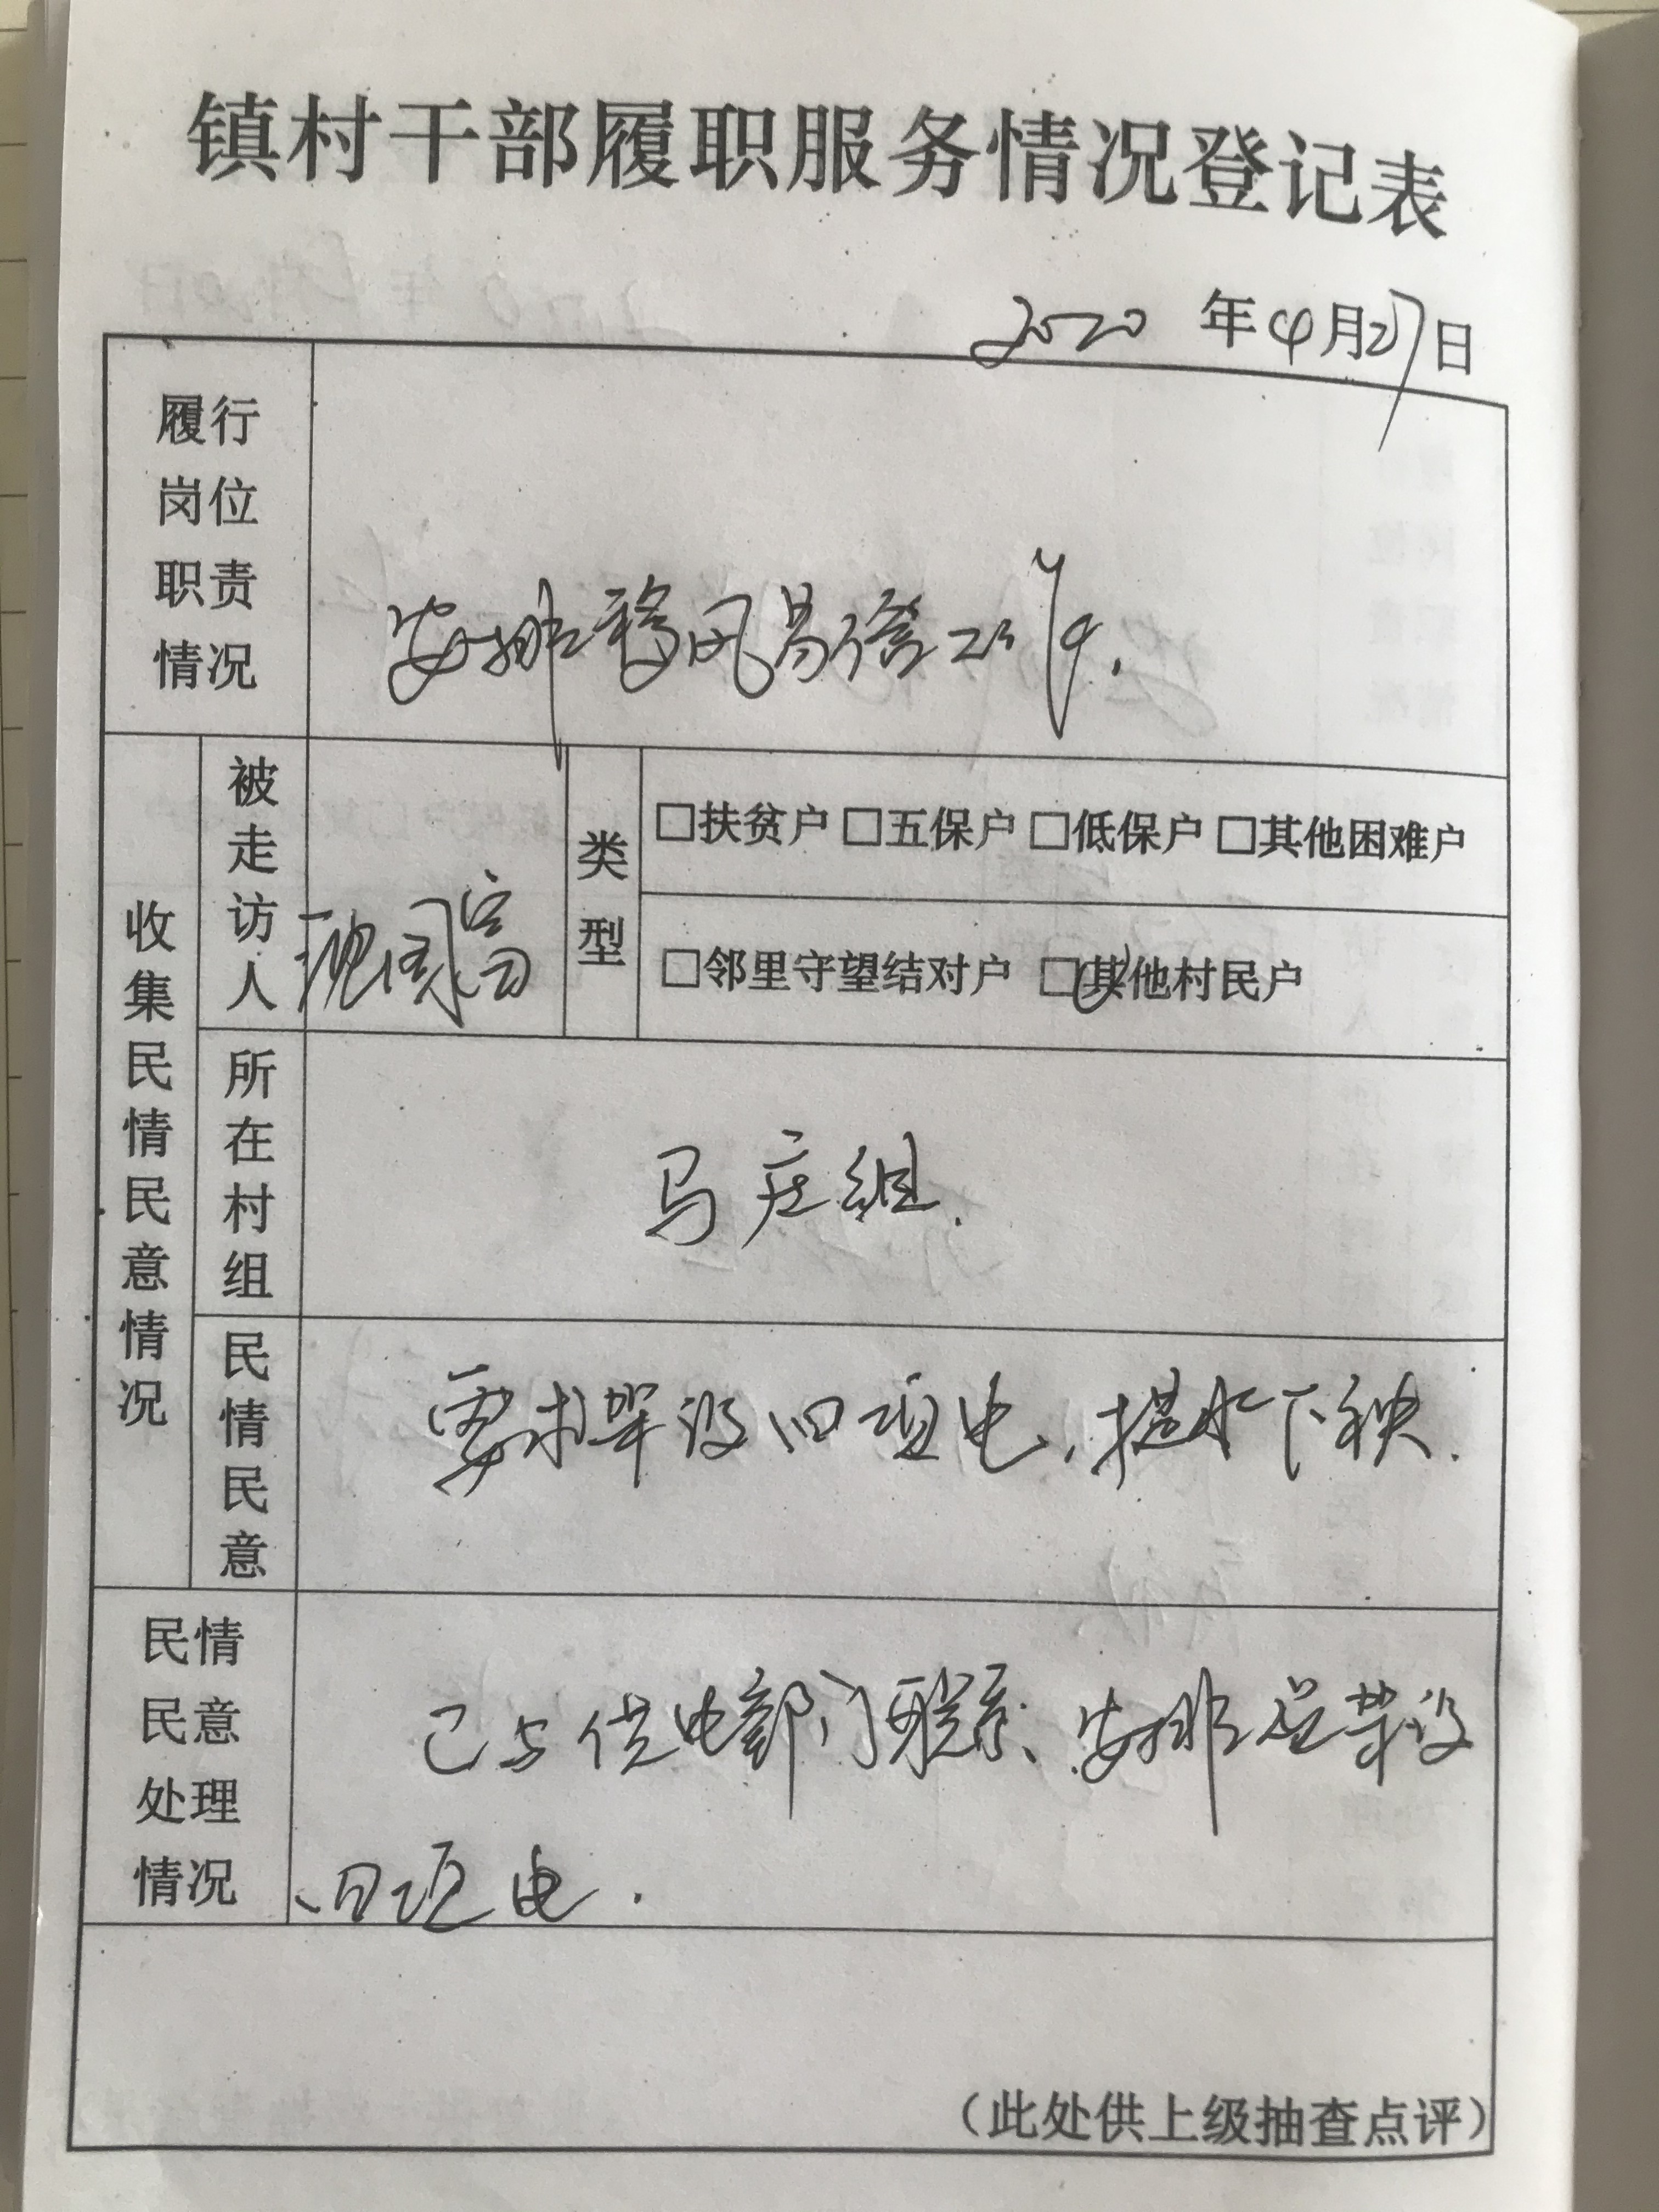 镇村干部履职服务情况登记表
2020 年 4 月 27 日
履行岗位职责情况
安排移风易俗工作.
收集民情民意情况
被走访人
国富
类型
□扶贫户 □五保户 □低保户 □其他困难户
□邻里守望结对户 □其他村民户
所在村组
马庄组.
民情民意
要求架设四项电,提水下秧.
民情民意处理情况
已与供电部门联系、安排架设
四项电.
(此处供上级抽查点评)